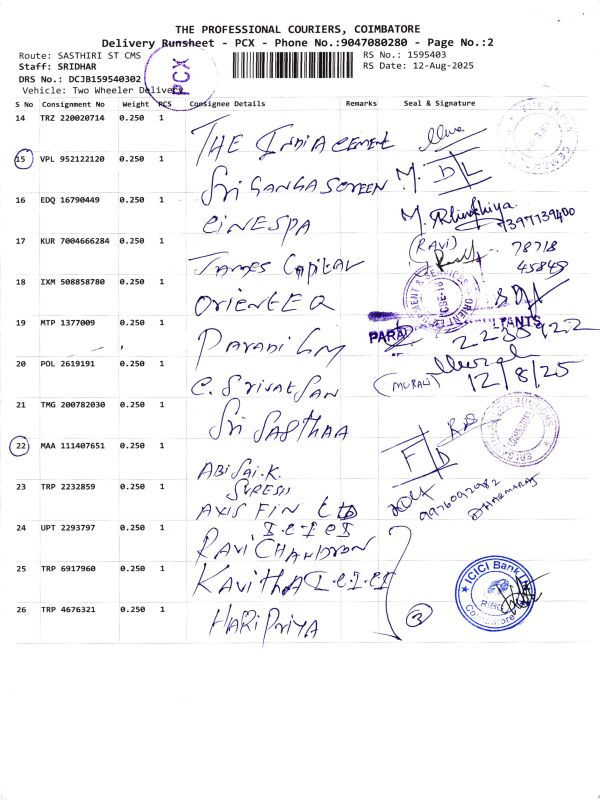 THE PROFESSIONAL COURIERS, COIMBATORE
Delivery Runsheet - PCX - Phone No.:9047080280 - Page No.:2
Route: SASTHIRI ST CMS
RS No.: 1595403
Staff: SRIDHAR
RS Date: 12-Aug-2025
DRS No.: DCJB159540302
Vehicle: Two Wheeler Delivery
PCX
S No Consignment No Weight PCS Consignee Details Remarks Seal & Signature
14 TRZ 220020714 0.250 1 THE India CEMENT
15 VPL 952122120 0.250 1 Sri GANGA SCREEN M. D L
16 EDQ 16790449 0.250 1 CINESPA M.
7397139400
17 KUR 7004666284 0.250 1 James Capital (RAVI) 78718
45849
18 IXM 508858780 0.250 1 ORIENTEER
19 MTP 1377009 0.250 1 Parani GM PARA
20 POL 2619191 0.250 1 C. Srivatsan (MURALI) 12/8/25
21 TMG 200782030 0.250 1 Sri SASTHAA
22 MAA 111407651 0.250 1 ABISAI.K. F D
SURESH
23 TRP 2232859 0.250 1 AXIS FIN Ltd 9976092982
DHARMARAJ
I.C.I.C.I
24 UPT 2293797 0.250 1 RAVICHANDRON
25 TRP 6917960 0.250 1 KavithA I.C.I.C.I
ICICI Bank Ltd
Coimbatore
26 TRP 4676321 0.250 1 HARIPRIYA 3